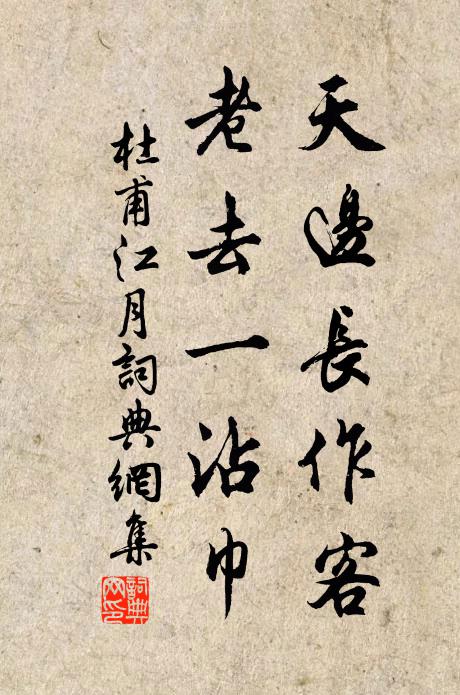 天邊長作客
老去一沾巾
杜甫江月詞典網集
詞典網印